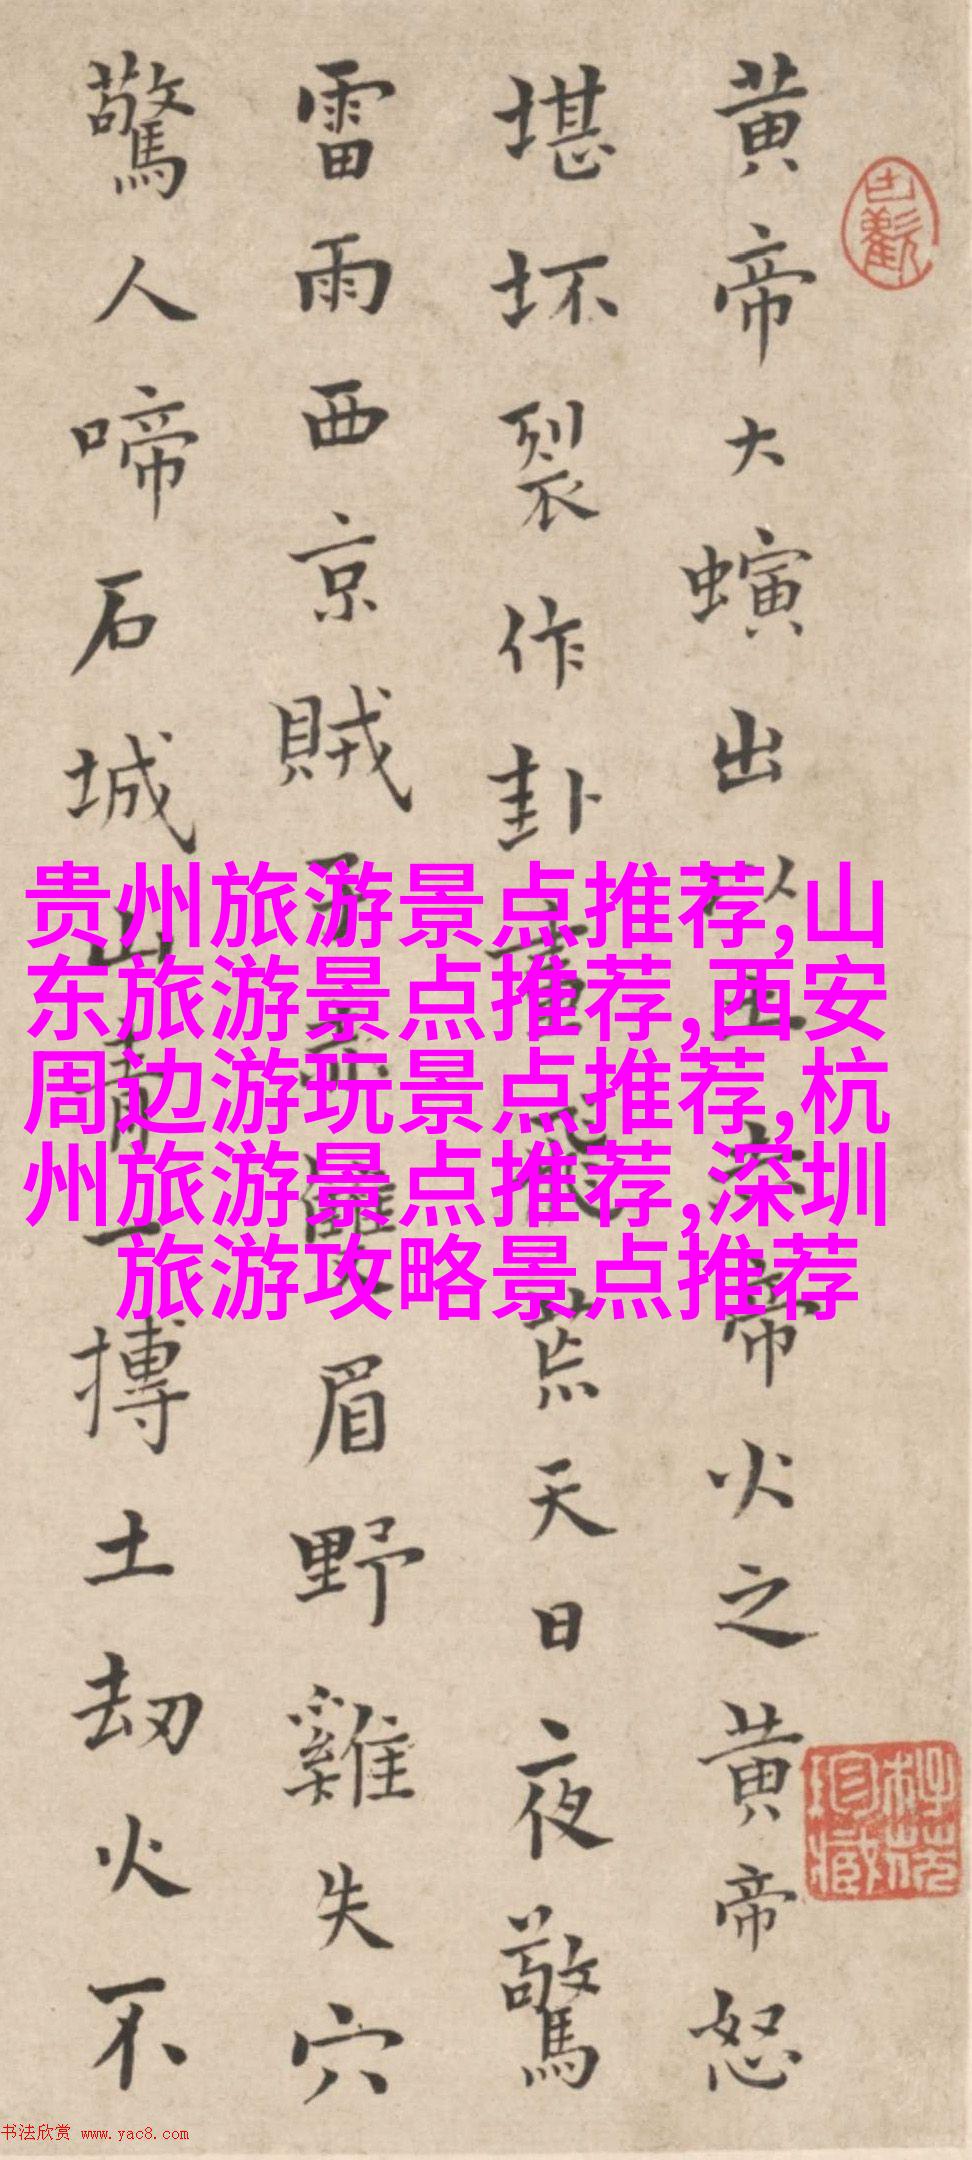 黄帝大螾出以土帝火之黄帝怒
堪坏裂作卦荒天日夜驚
雷雨西京賊子眉野雞失穴
驚人啼石城山青一摶土劫火不
贵州旅游景点推荐,山
东旅游景点推荐,西安
周边游玩景点推荐,杭
州旅游景点推荐,深圳
旅游攻略景点推荐
书法欣赏 www.yac8.com